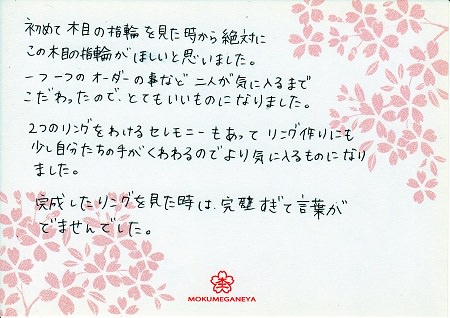 初めて木目の指輪を見た時から絶対に
この木目の指輪がほしいと思いました。
一つ一つのオーダーの事など二人が気に入るまで
こだわったので、とてもいいものになりました。
2つのリングをわけるセレモニーもあってリング作りにも
少し自分たちの手がくわわるのでより気に入るものになり
ました。
完成したリングを見た時は、完璧すぎて言葉が
でませんでした。
MOKUMEGANEYA